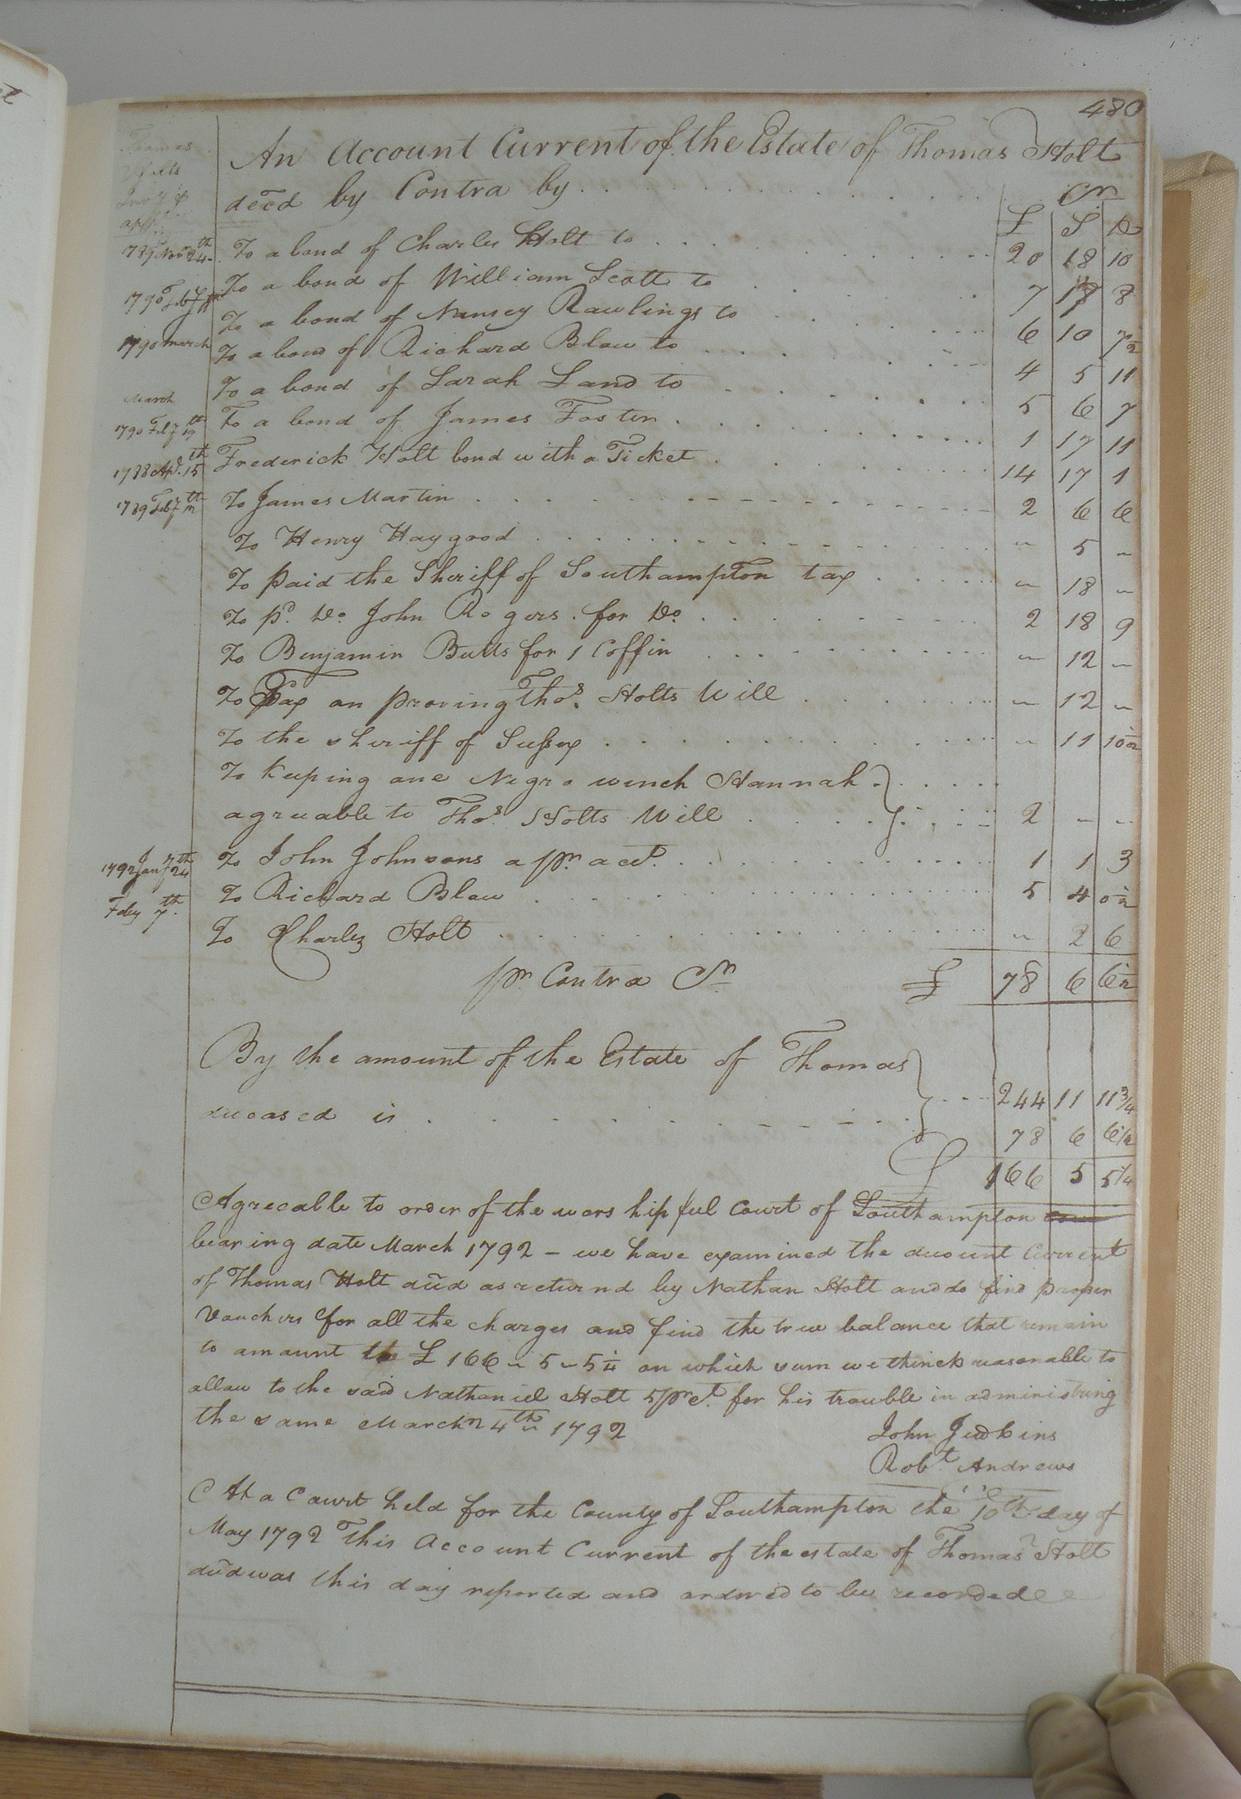 480
An Account Current of the Estate of Thomas Holt
decd by Contra by . . . Cr
£ S D
1789 Novr 24th To a bond of Charles Holt to . . . 20 18 10
To a bond of William Scott to . . . 7 17 8
1790 To a bond of Nancey Rawlings to . . . 6 10 7½
1790 march To a bond of Richard Blow to . . . 4 5 11
To a bond of Sarah Land to . . . 5 6 7
March
1790 Feby To a bond of James Foster . . . 1 17 11
1788 Apl. 15th Frederick Holt bond with a Ticket . . . 14 17 1
1789 Feby To James Martin . . . 2 6 6
To Henry Haygood . . . ~ 5 ~
To paid the Sheriff of Southampton tax . . . ~ 18 ~
To pd. Do. John Rogers. for Do. . . . 2 18 9
To Benjamin Butts for 1 Coffin . . . ~ 12 ~
To Tax on proving Thos. Holts Will . . . ~ 12 ~
To the sheriff of Sussex . . . ~ 11 10½
To Keeping one Negro wench Hannah
agreeable to Thos. Holts Will . . . 2 ~ ~
1792 Jany 24th To John Johnsons a pr. acct. . . . 1 1 3
Feby 7th. To Richard Blow . . . 5 4 0½
To Charles Holt . . . ~ 2 6
pr Contra Cr £ 78 6 6½
By the amount of the Estate of Thomas
deceased is . . . 244 11 11¾
78 6 6½
£ 166 5 5¼
Agreeable to order of the worshipful Court of Southampton
bearing date March 1792 – we have examined the account Current
of Thomas Holt decd as returnd by Nathan Holt and do find proper
Vouchers for all the charges and find the true balance that remain
to amount to £ 166 ~ 5 ~ 5¼ on which sum we thinck reasonable to
allow to the said Nathaniel Holt 5 pr Ct. for his trouble in administring
the same March 24th 1792
John Judkins
Robt Andrews
At a Court held for the County of Southampton the 10th day of
May 1792 This Account Current of the estate of Thomas Holt
decd was this day reported and ordered to be recorded